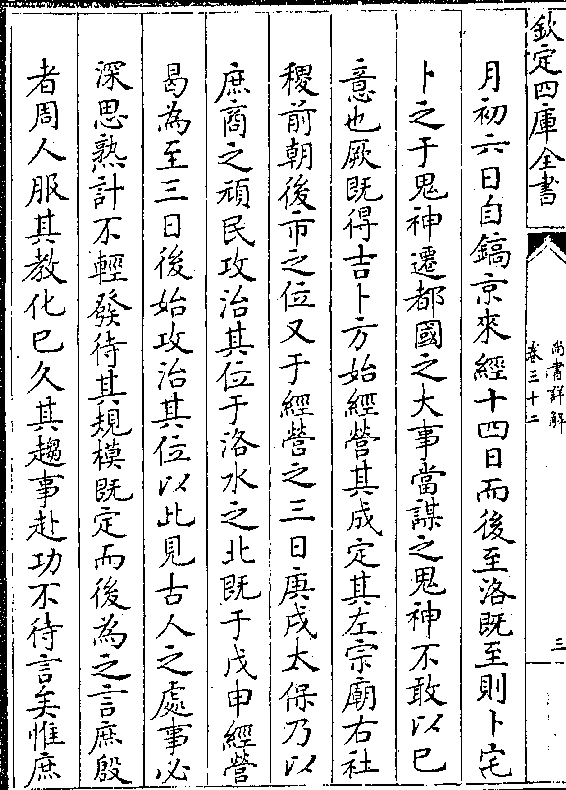 欽定四庫全書
尚書詳解
卷三十二
三
月初六日自鎬京來經十四日而後至洛既至則卜宅
卜之于鬼神遷都國之大事當謀之鬼神不敢以已
意也厥既得吉卜方始經營其成定其左宗廟右社
稷前朝後市之位又于經營之三日庚戌太保乃以
庶商之頑民攻治其位于洛水之北既于戊申經營
曷為至三日後始攻治其位以此見古人之處事必
深思熟計不輕發待其規模既定而後為之言庶殷
者周人服其教化已久其趨事赴功不待言矣惟庶